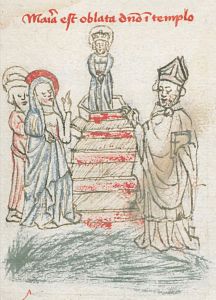 Maīa est oblata dnō ī templo